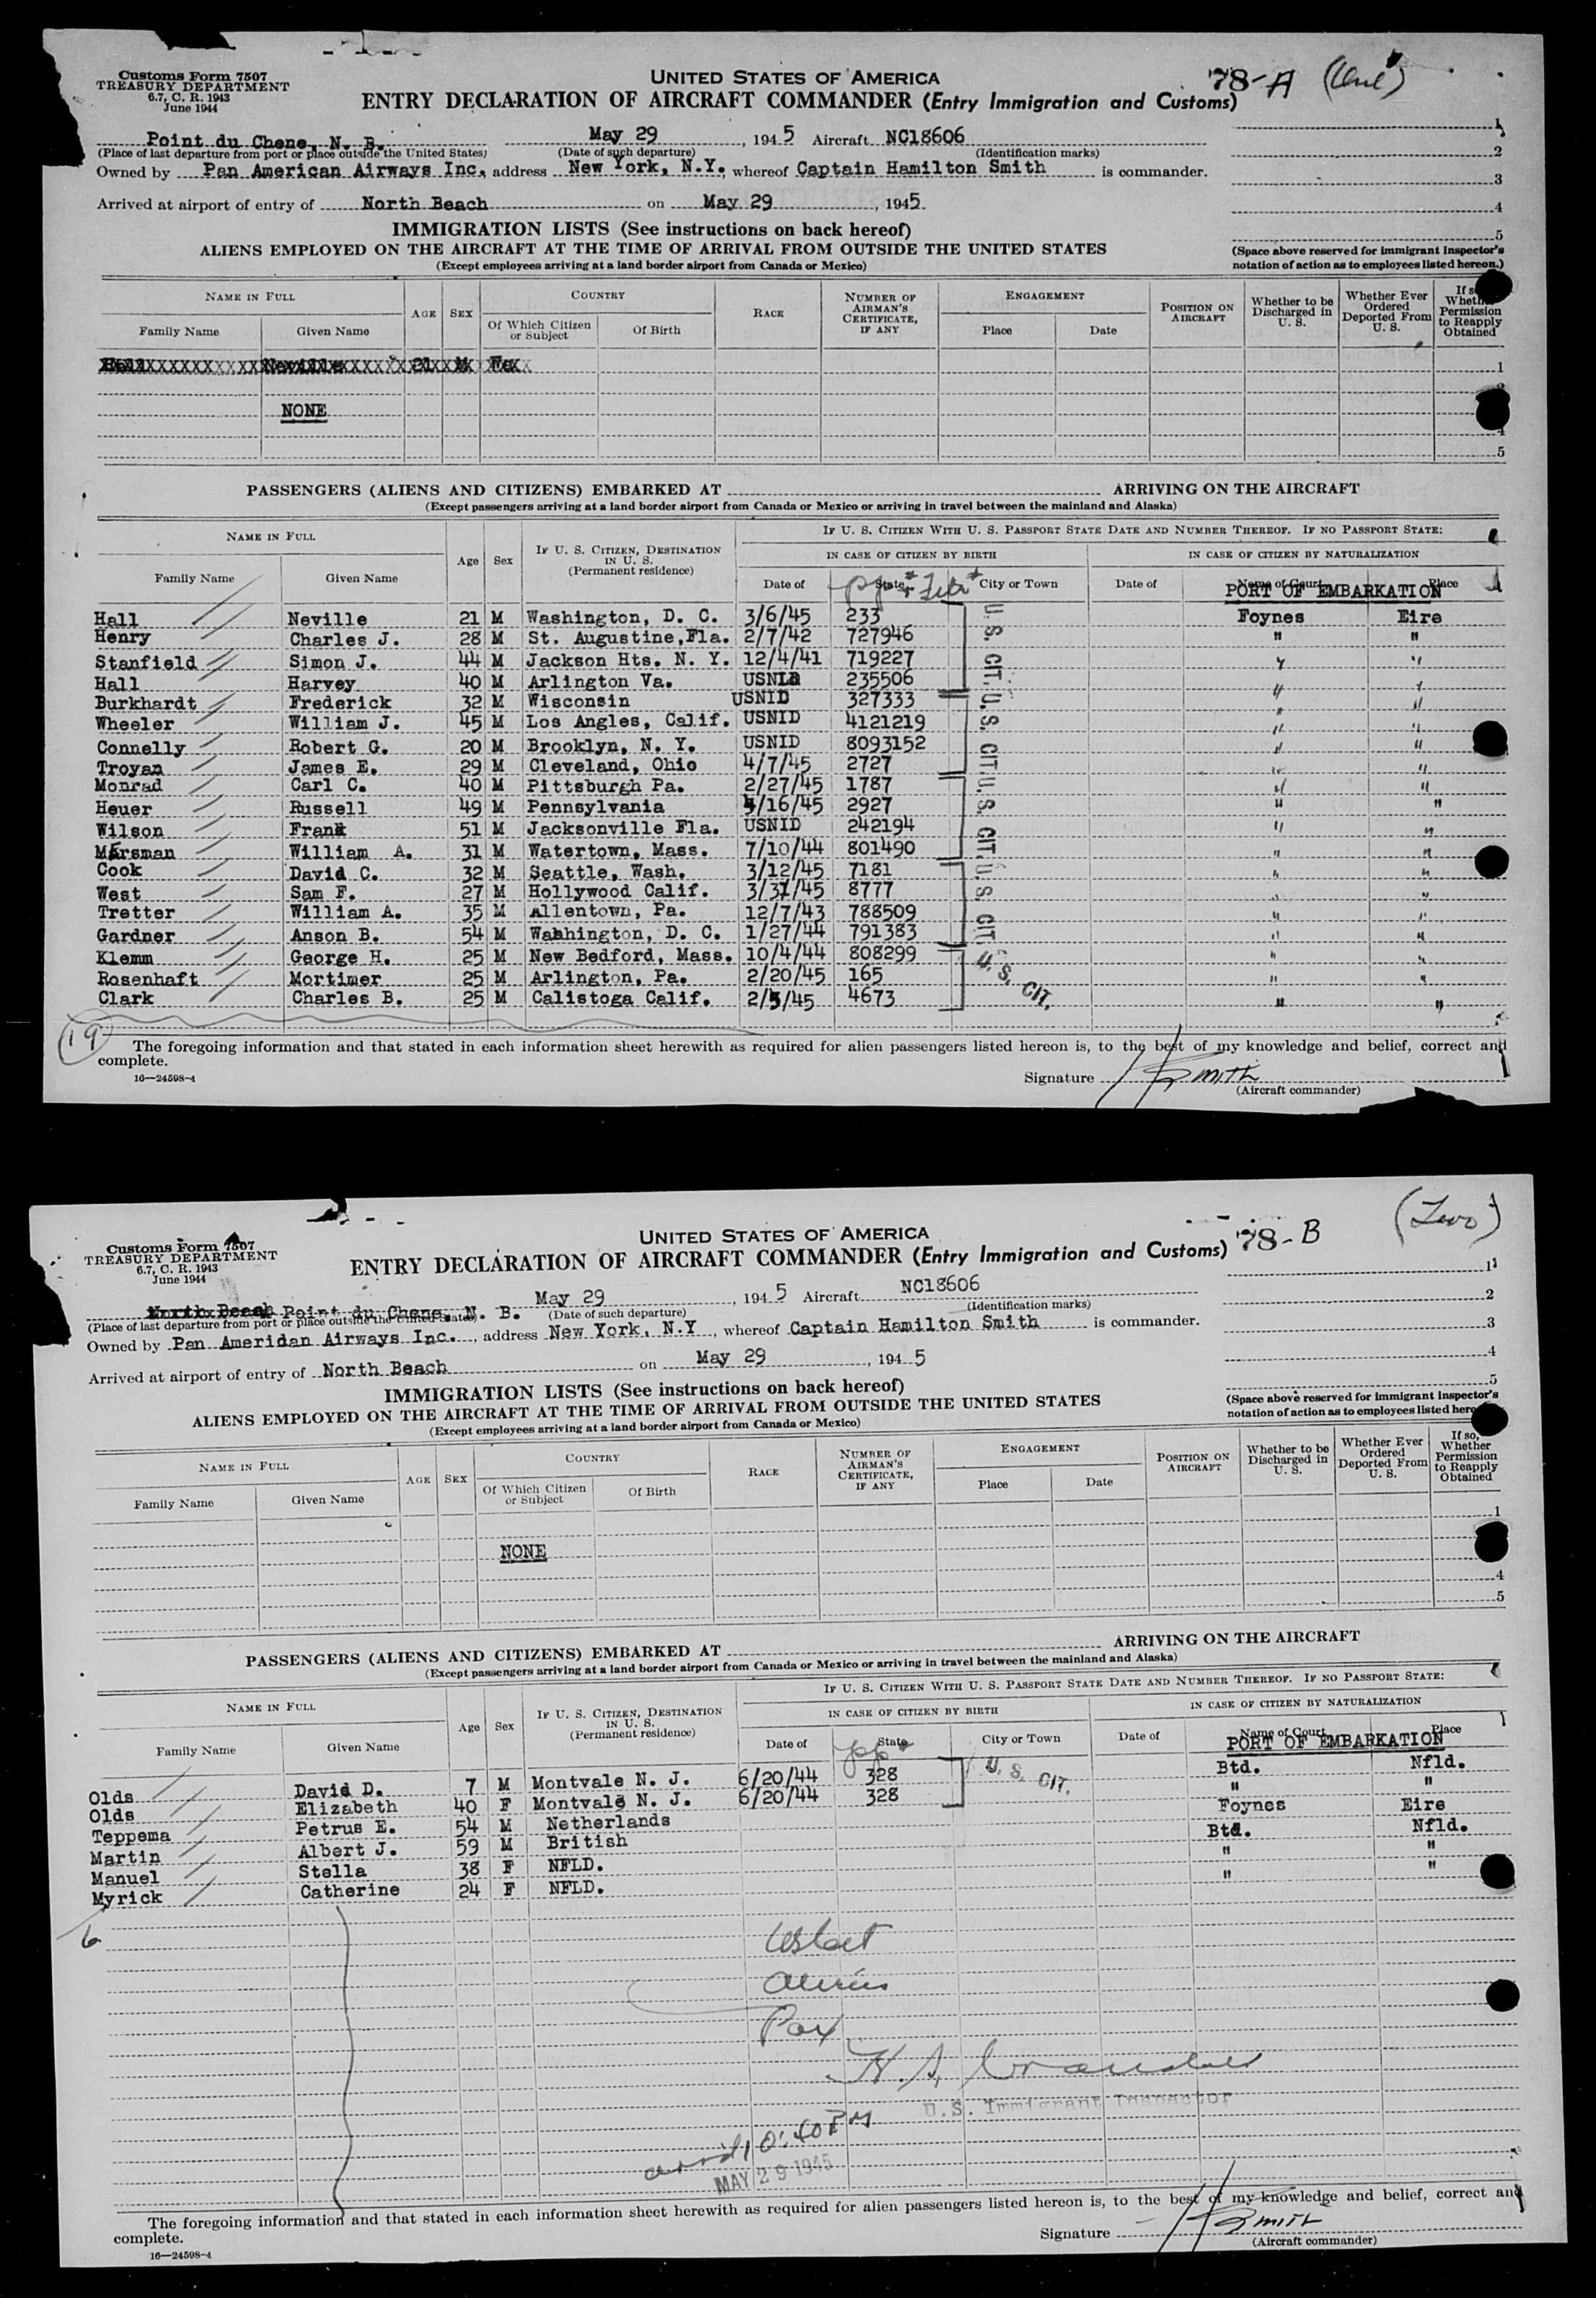 Customs Form 7507
TREASURY DEPARTMENT
6.7, C. R. 1943
June 1944
UNITED STATES OF AMERICA
ENTRY DECLARATION OF AIRCRAFT COMMANDER (Entry Immigration and Customs)
78-A (One)
Point du Chene, N. B. May 29, 1945 Aircraft NC18606
(Place of last departure from port or place outside the United States) (Date of such departure) (Identification marks)
Owned by Pan American Airways Inc., address New York, N.Y., whereof Captain Hamilton Smith is commander.
Arrived at airport of entry of North Beach on May 29, 1945
1
2
3
4
5
IMMIGRATION LISTS (See instructions on back hereof)
ALIENS EMPLOYED ON THE AIRCRAFT AT THE TIME OF ARRIVAL FROM OUTSIDE THE UNITED STATES
(Except employees arriving at a land border airport from Canada or Mexico)
(Space above reserved for immigrant inspector's
notation of action as to employees listed hereon.)
NAME IN FULL AGE SEX COUNTRY RACE NUMBER OF AIRMAN'S CERTIFICATE, IF ANY ENGAGEMENT POSITION ON AIRCRAFT Whether to be Discharged in U. S. Whether Ever Ordered Deported From U. S. Permission to Reapply Obtained
Family Name Given Name Of Which Citizen or Subject Of Birth Place Date
Hall Neville 21 M
1
NONE
5
PASSENGERS (ALIENS AND CITIZENS) EMBARKED AT ARRIVING ON THE AIRCRAFT
(Except passengers arriving at a land border airport from Canada or Mexico or arriving in travel between the mainland and Alaska)
NAME IN FULL Age Sex IF U. S. CITIZEN, DESTINATION IN U. S. (Permanent residence) IF U. S. CITIZEN WITH U. S. PASSPORT STATE DATE AND NUMBER THEREOF. IF NO PASSPORT STATE:
IN CASE OF CITIZEN BY BIRTH IN CASE OF CITIZEN BY NATURALIZATION
Family Name Given Name Date of State City or Town Date of Name of Court Place
PORT OF EMBARKATION
Hall Neville 21 M Washington, D. C. 3/6/45 233 Foynes Eire
Henry Charles J. 28 M St. Augustine,Fla. 2/7/42 727946 " "
Stanfield Simon J. 44 M Jackson Hts. N. Y. 12/4/41 719227 " "
Hall Harvey 40 M Arlington Va. USNID 235506 " "
Burkhardt Frederick 32 M Wisconsin USNID 327333 " "
Wheeler William J. 45 M Los Angles, Calif. USNID 4121219 " "
Connelly Robert G. 20 M Brooklyn, N. Y. USNID 8093152 " "
Troyan James E. 29 M Cleveland, Ohio 4/7/45 2727 " "
Monrad Carl C. 40 M Pittsburgh Pa. 2/27/45 1787 " "
Heuer Russell 49 M Pennsylvania 4/16/45 2927 " "
Wilson Frank 51 M Jacksonville Fla. USNID 242194 " "
Mersman William A. 31 M Watertown, Mass. 7/10/44 801490 " "
Cook David C. 32 M Seattle, Wash. 3/12/45 7181 " "
West Sam F. 27 M Hollywood Calif. 3/31/45 8777 " "
Tretter William A. 35 M Allentown, Pa. 12/7/43 788509 " "
Gardner Anson B. 54 M Washington, D. C. 1/27/44 791383 " "
Klemm George H. 25 M New Bedford, Mass. 10/4/44 808299 " "
Rosenhaft Mortimer 25 M Arlington, Pa. 2/20/45 165 " "
Clark Charles B. 25 M Calistoga Calif. 2/5/45 4673 " "
U. S. CIT. U. S. CIT. U. S. CIT. U. S. CIT. U. S. CIT.
19
The foregoing information and that stated in each information sheet herewith as required for alien passengers listed hereon is, to the best of my knowledge and belief, correct and
complete.
16—24598-4
Signature Smith
(Aircraft commander)
Customs Form 7507
TREASURY DEPARTMENT
6.7, C. R. 1943
June 1944
UNITED STATES OF AMERICA
ENTRY DECLARATION OF AIRCRAFT COMMANDER (Entry Immigration and Customs)
78-B (Two)
North Beach Point du Chene, N. B. May 29, 1945 Aircraft NC18606
(Place of last departure from port or place outside the United States) (Date of such departure) (Identification marks)
Owned by Pan Ameridan Airways Inc., address New York, N.Y, whereof Captain Hamilton Smith is commander.
Arrived at airport of entry of North Beach on May 29, 1945
1
2
3
4
5
IMMIGRATION LISTS (See instructions on back hereof)
ALIENS EMPLOYED ON THE AIRCRAFT AT THE TIME OF ARRIVAL FROM OUTSIDE THE UNITED STATES
(Except employees arriving at a land border airport from Canada or Mexico)
(Space above reserved for immigrant inspector's
notation of action as to employees listed
NAME IN FULL AGE SEX COUNTRY RACE NUMBER OF AIRMAN'S CERTIFICATE, IF ANY ENGAGEMENT POSITION ON AIRCRAFT Whether to be Discharged in U. S. Whether Ever Ordered Deported From U. S. If so, Whether Permission to Reapply Obtained
Family Name Given Name Of Which Citizen or Subject Of Birth Place Date
1
NONE
4
5
PASSENGERS (ALIENS AND CITIZENS) EMBARKED AT ARRIVING ON THE AIRCRAFT
(Except passengers arriving at a land border airport from Canada or Mexico or arriving in travel between the mainland and Alaska)
NAME IN FULL Age Sex IF U. S. CITIZEN, DESTINATION IN U. S. (Permanent residence) IF U. S. CITIZEN WITH U. S. PASSPORT STATE DATE AND NUMBER THEREOF. IF NO PASSPORT STATE:
IN CASE OF CITIZEN BY BIRTH IN CASE OF CITIZEN BY NATURALIZATION
Family Name Given Name Date of State City or Town Date of Name of Court Place
PORT OF EMBARKATION
Olds David D. 7 M Montvale N. J. 6/20/44 328 U. S. CIT. Btd. Nfld.
Olds Elizabeth 40 F Montvale N. J. 6/20/44 328 " "
Teppema Petrus E. 54 M Netherlands Foynes Eire
Martin Albert J. 59 M British Btd. Nfld.
Manuel Stella 38 F NFLD. " "
Myrick Catherine 24 F NFLD. " "
6
Pax
U.S. Immigrant Inspector
arrd 10:40 PM
MAY 29 1945
The foregoing information and that stated in each information sheet herewith as required for alien passengers listed hereon is, to the best of my knowledge and belief, correct and
complete.
16—24598-4
Signature Smith
(Aircraft commander)